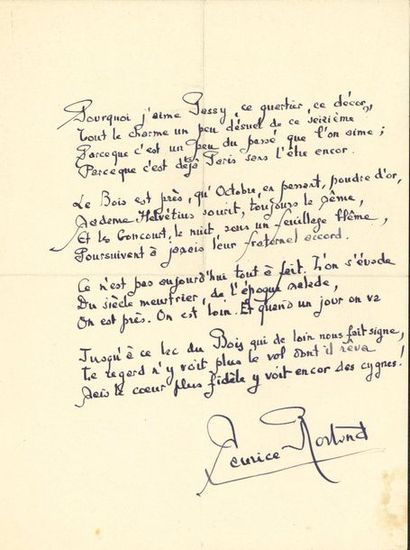 Pourquoi j'aime Passy, ce quartier, ce décor,
Tout le charme un peu désuet de ce seizième
Parceque c'est un peu du passé que l'on aime ;
Parceque c'est déjà Paris sans l'être encor.
Le Bois est près, qu'Octobre, en passant, poudre d'or,
Madame Helvétius sourit, toujours la même,
Et les Goncourt, la nuit, sous un feuillage blême,
Poursuivent à jamais leur fraternel accord.
Ce n'est pas aujourd'hui tout à fait. L'on s'évade
Du siècle meurtrier, de l'époque malade,
On est près. On est loin. Et quand un jour on va
Jusqu'à ce lac du Bois qui de loin nous fait signe,
Le regard n'y voit plus le vol dont il rêva
Mais le coeur plus fidèle y voit encor des cygnes !
Maurice Rostand